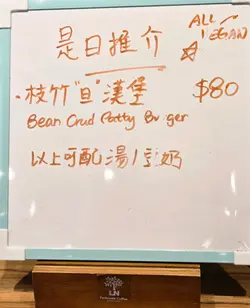 是日推介
ALL VEGAN
· 枝竹"旦"漢堡 $80
Bean Crud Patty Burger
以上可配湯/豆奶
LN